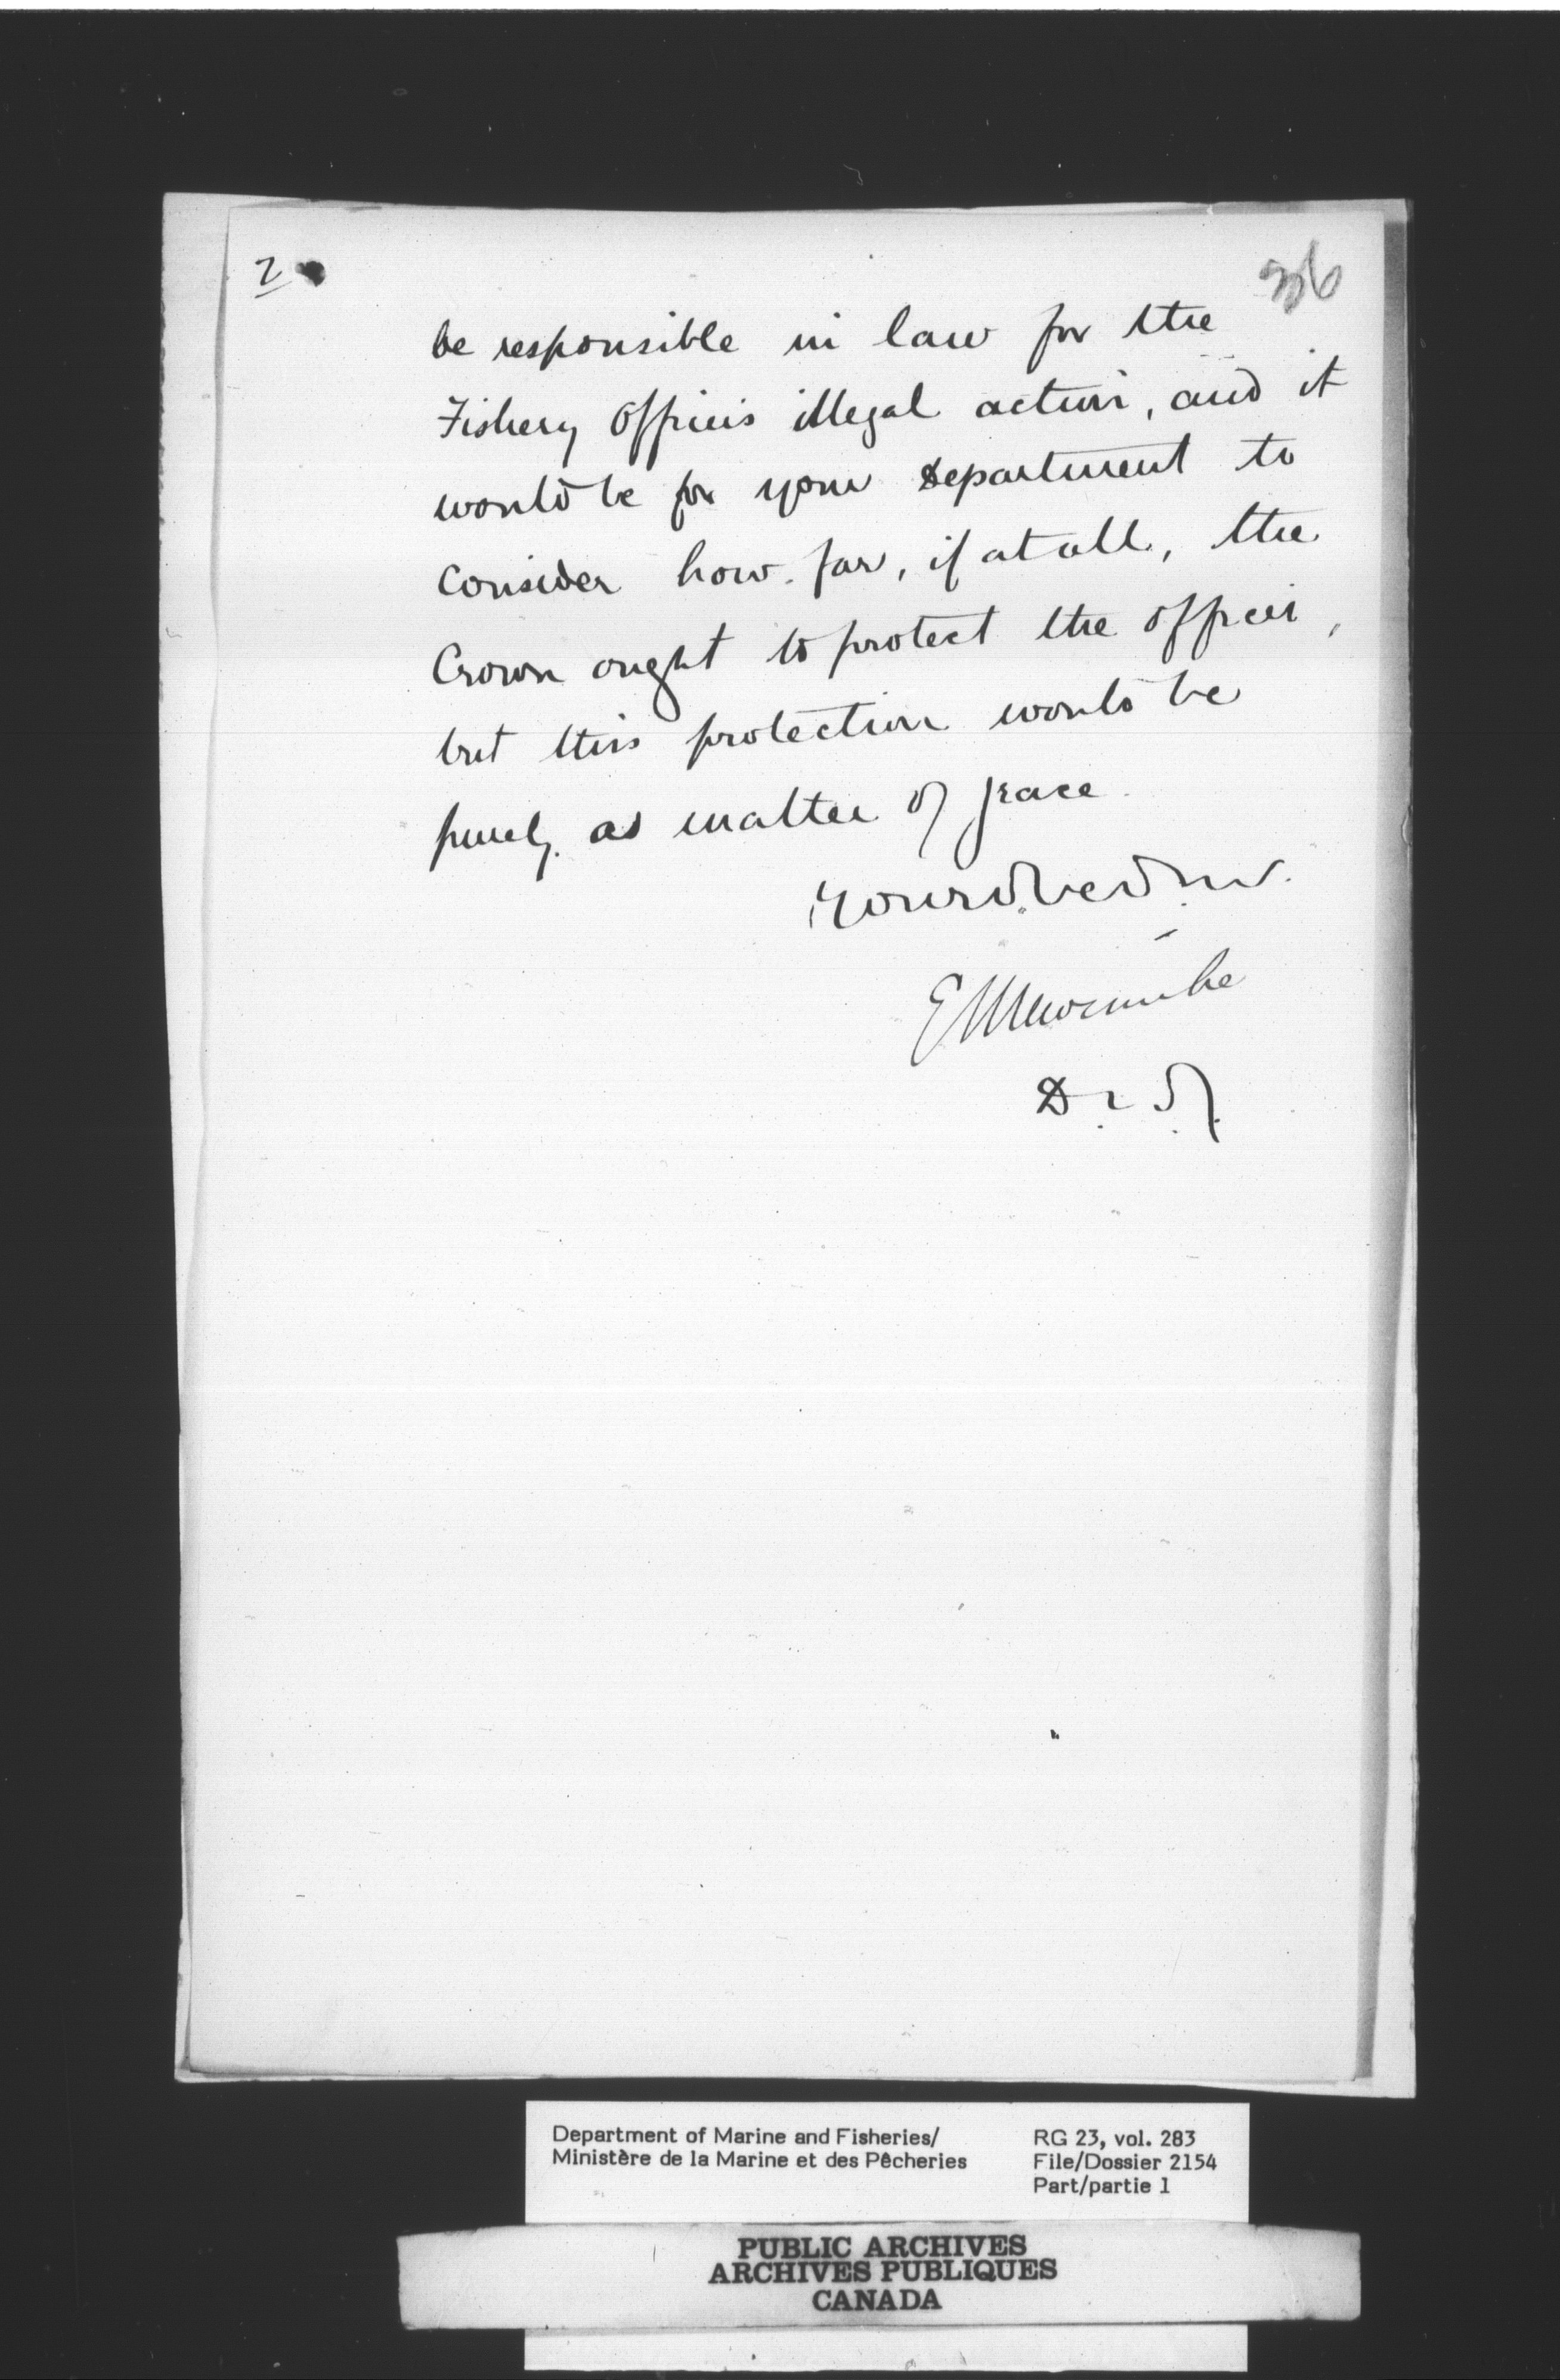 2
36
be responsible in law for the
Fishery Officers illegal action, and it
would be for your Department to
consider how far, if at all, the
Crown ought to protect the officer,
but this protection would be
purely as matter of grace.
E L Newcombe
D. M. J.
Department of Marine and Fisheries/
Ministère de la Marine et des Pêcheries
RG 23, vol. 283
File/Dossier 2154
Part/partie 1
PUBLIC ARCHIVES
ARCHIVES PUBLIQUES
CANADA